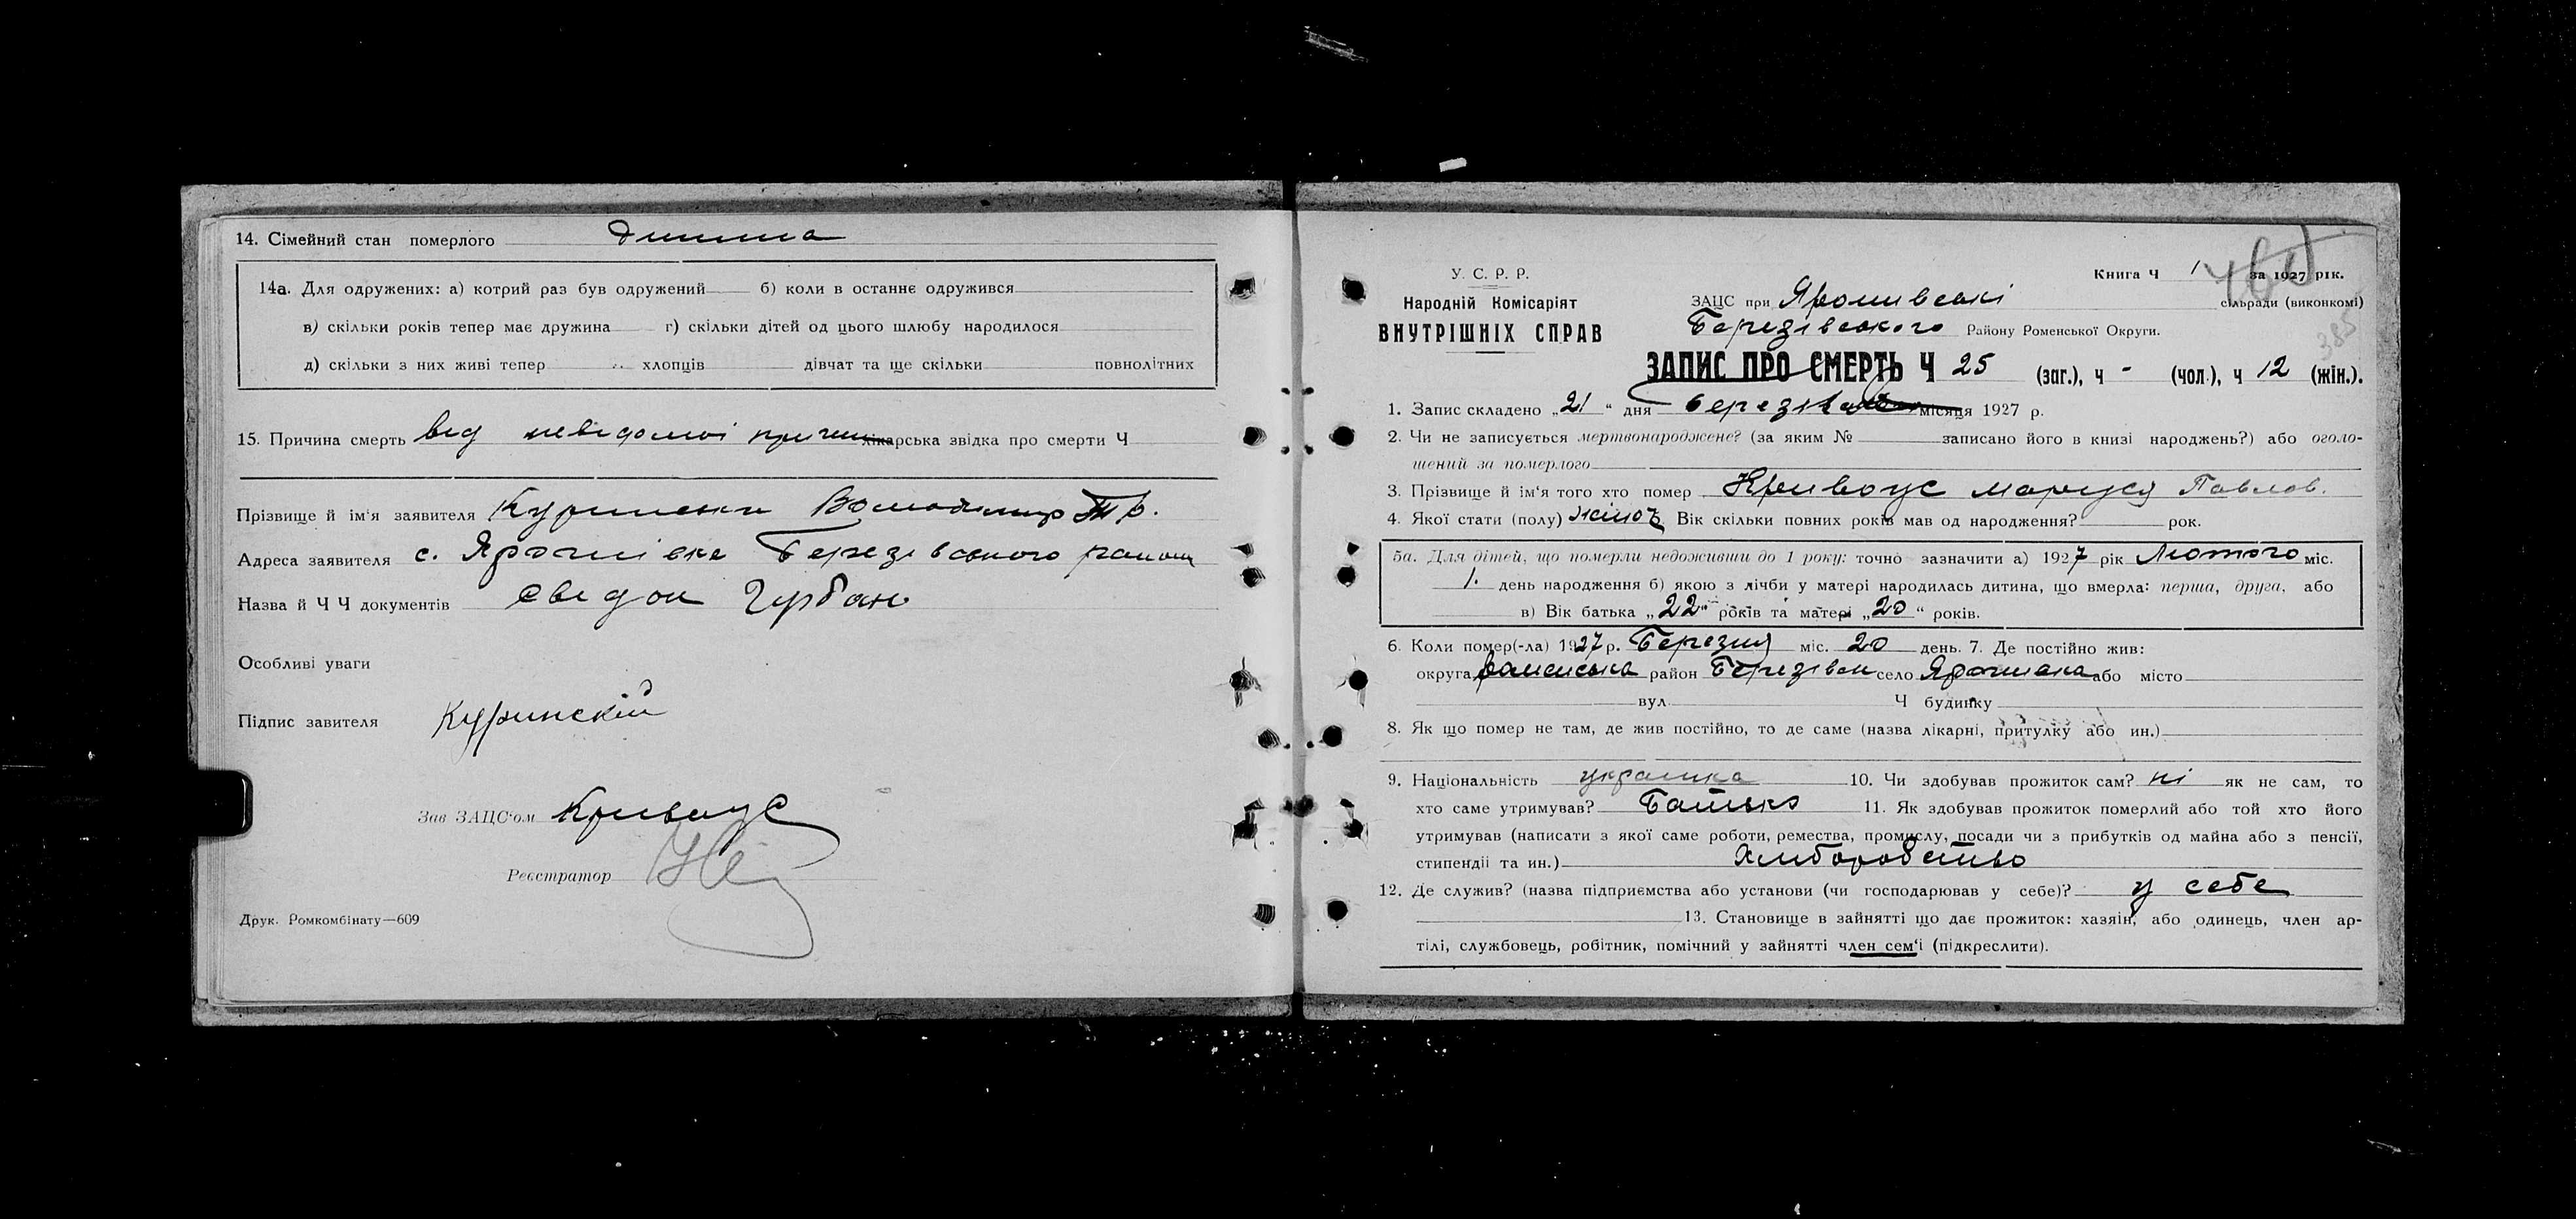 14. Сімейний стан померлого дитина
14а. Для одружених: а) котрий раз був одружений б) коли в останнє одружився
в) скільки років тепер має дружина г) скільки дітей од цього шлюбу народилося
д) скілки з них живі тепер хлопців дівчат та ще скільки повнолітних
15. Причина смерть від невідомої причин лікарська звідка про смерти Ч
Прізвище й ім'я заявителя Володимир
Адреса заявителя с. Березівського району
Назва й Ч Ч документів
Особливі уваги
Підпис завителя Куринскій
Зав ЗАЦС'ом Кривоус
Реєстратор
Друк. Ромкомбінату—609
У. С. Р. Р.
Народній Комісаріят
ВНУТРІШНІХ СПРАВ
Книга Ч 1 за 1927 рік.
ЗАЦС при сільради (виконкомі)
Березівського Району Роменської Округи.
385
ЗАПИС ПРО СМЕРТЬ Ч 25 (заг.), ч - (чол.), ч 12 (жін.).
1. Запис складено „21“ дня місяця 1927 р.
2. Чи не записується мертвонароджене? (за яким № записано його в книзі народжень?) або оголо-
шений за померлого
3. Прізвище й ім'я того хто помер Кривоус Маруся Павлов.
4. Якої стати (полу) жіноч Вік скільки повних років мав од народження? рок.
5а. Для дітей, що померли недоживши до 1 року: точно зазначити а) 1927 рік Лютого міс.
1. день народження б) якою з лічби у матері народилась дитина, що вмерла: перша, друга, або
в) Вік батька „22“ років та матері „20“ років.
6. Коли помер(-ла) 1927 р. Березня міс. 20 день. 7. Де постійно жив:
округа район село або місто
вул Ч будинку
8. Як що помер не там, де жив постійно, то де саме (назва лікарні, притулку або ин.)
9. Національність 10. Чи здобував прожиток сам? ні як не сам, то
хто саме утримував? Батько 11. Як здобував прожиток померлий або той хто його
утримував (написати з якої саме роботи, ремества, промислу, посади чи з прибутків од майна або з пенсії,
стипендії та ин.) Хліборобство
12. Де служив? (назва підприємства або установи (чи господарював у себе)? у себе
13. Становище в зайнятті що дає прожиток: хазяін, або одинець, член ар-
тілі, службовець, робітник, помічний у зайнятті член сем'ї (підкреслити).